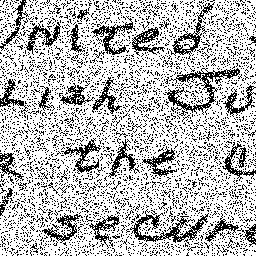 United
lish Ju
the
secure